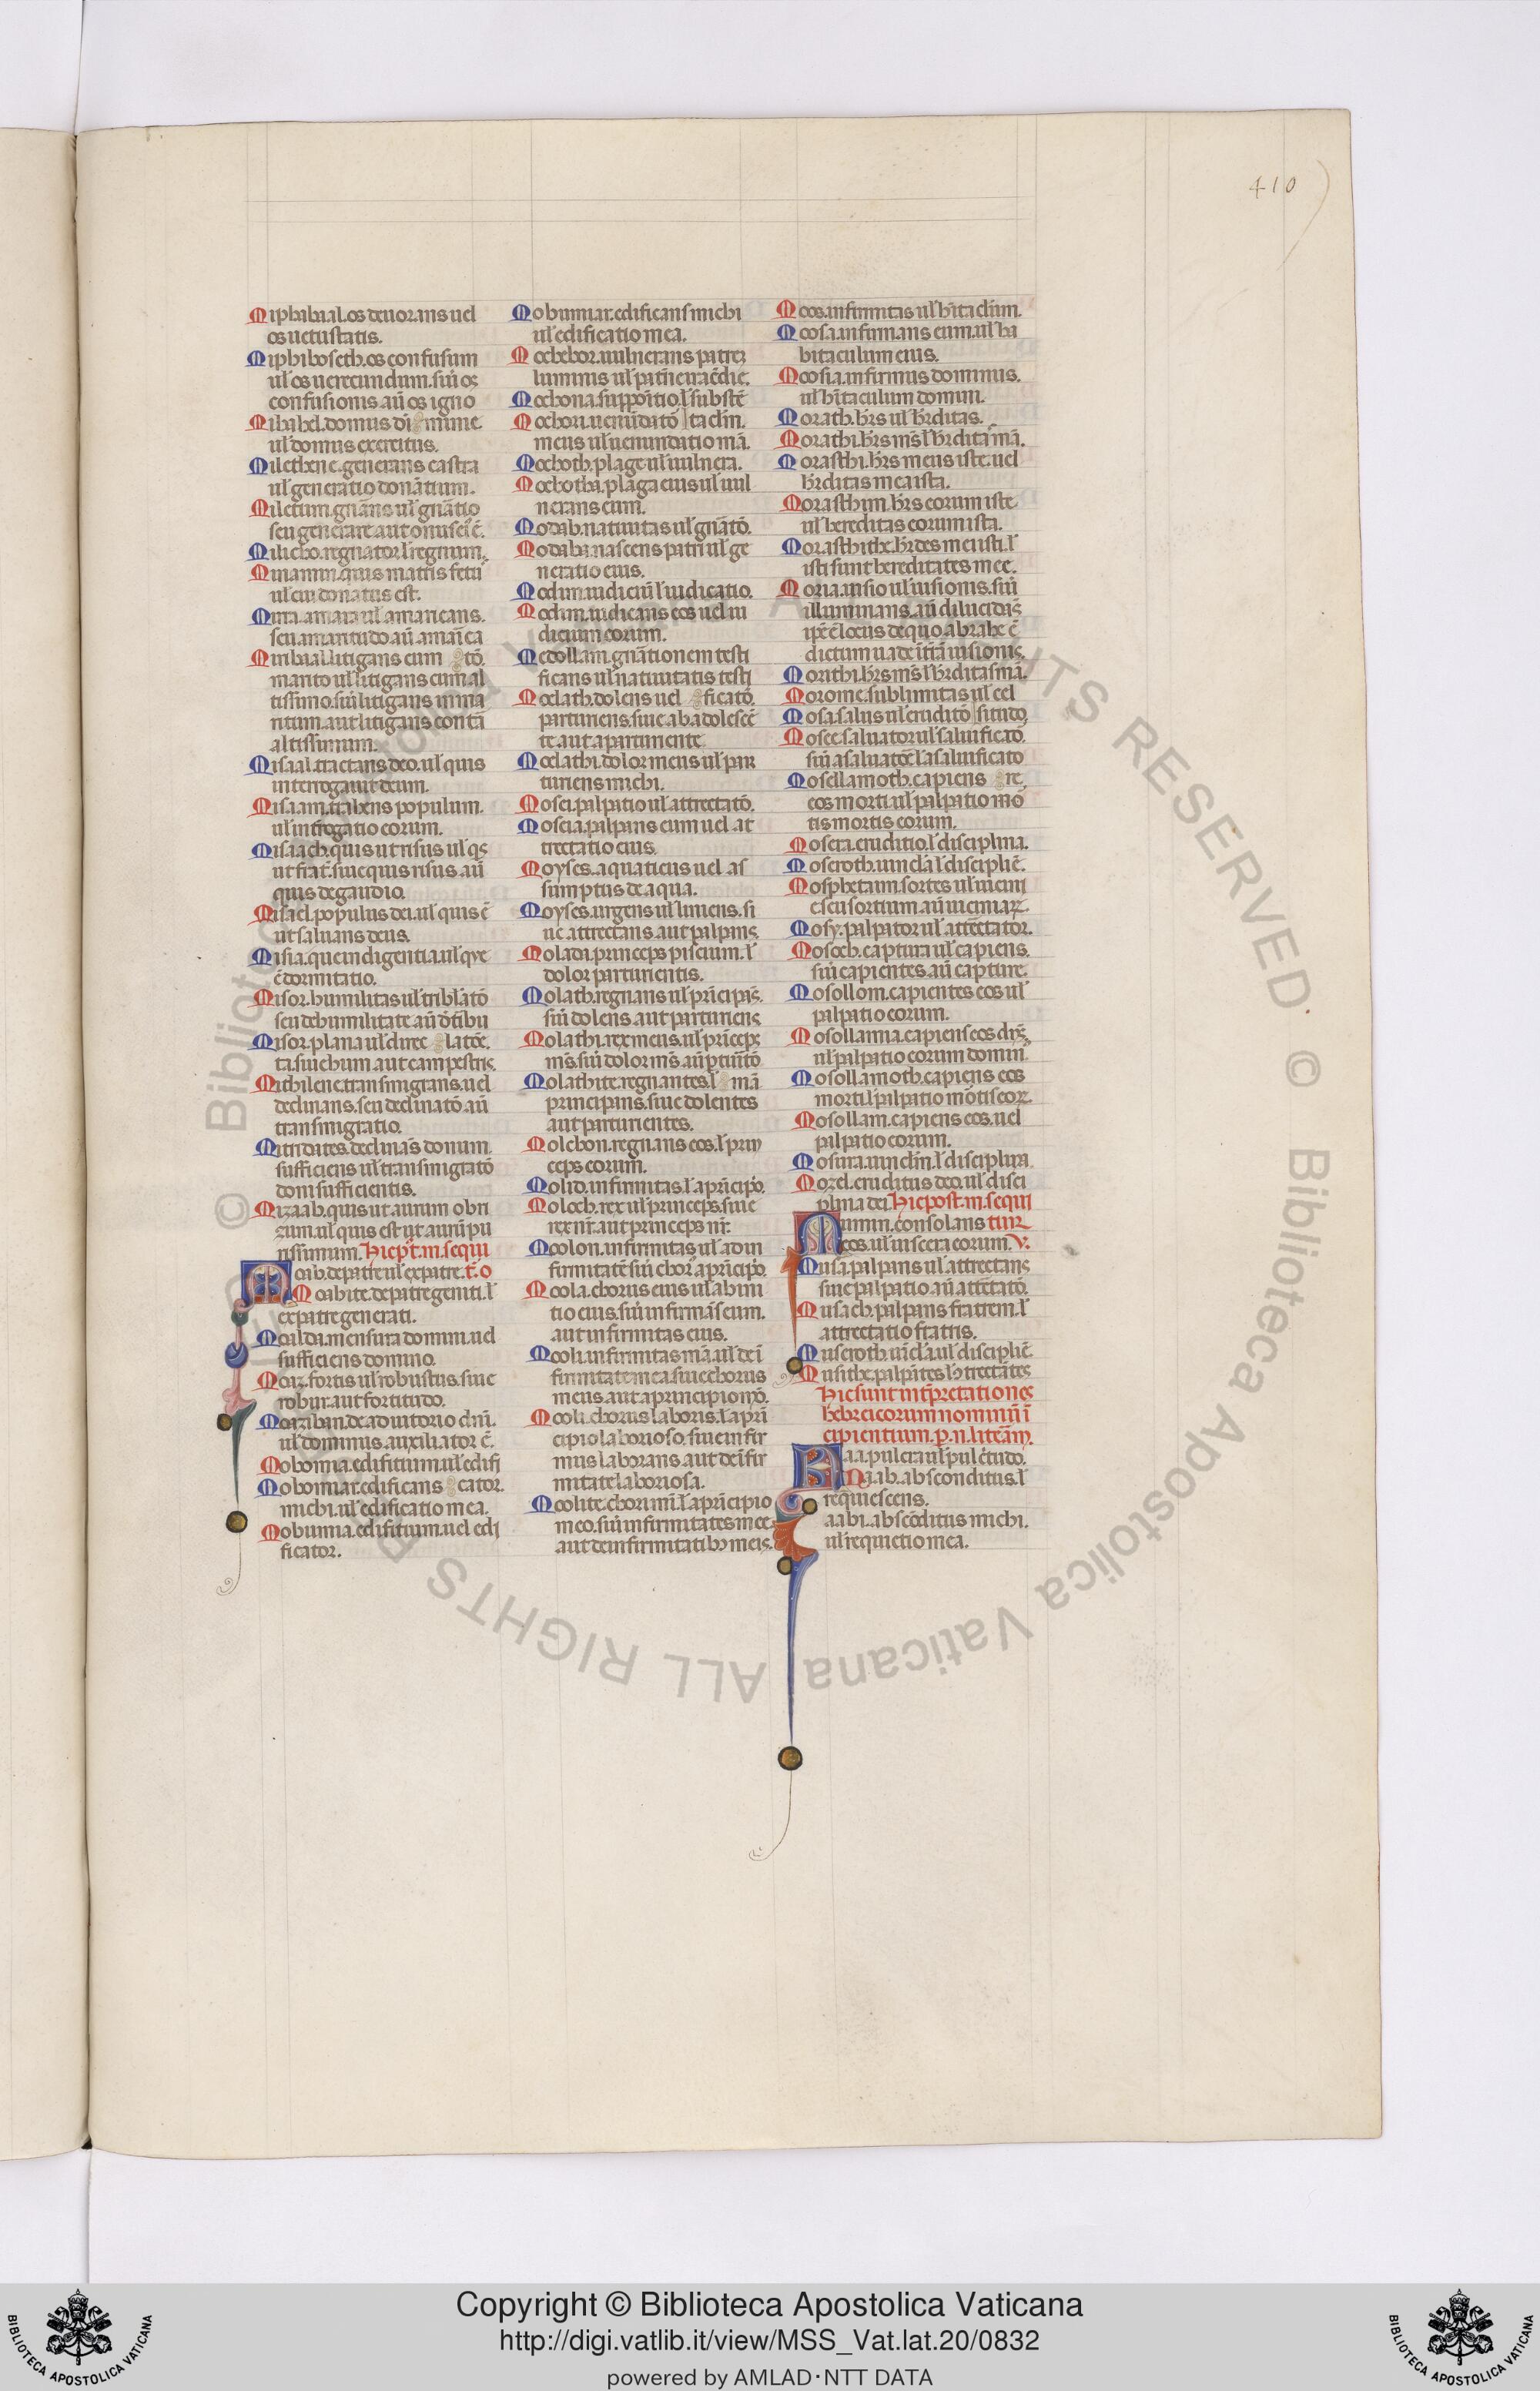 410
Miphibaal. os deuorans uel
os uetustatis.
Miphiboseth. os confusum
ul' os uerecundum. siu' os
confusionis au' os igno
Mibabel. domus dei mine
ul' domus exercitus.
Milethene. generans castra
ul' generatio donatium.
Miletum. gnans ul' gnatio
seu generare aut
Milicho. regnator l' regnum.
ul' cui donatus est.
Mirra. amara ul' amaricans.
seu amaritudo au'
Miribaal. litigans cum
manto ul' litigans cum al
tissimo. siu' litigans
ritum. aut litigans contra
altissimum.
Misaal. tractans deo. ul' quis
interrogauit deum.
Misaam. trahens populum.
ul' interrogatio eorum.
Misaach. quis ut risus ul' qs
ut frat'. siue quis risus au'
quis de gaudio.
Misael. populus dei. ul' quis e
ut saluans deus.
Misia. que indigentia. ul' que
e dormitatio.
Misor. humilitas ul' tribulato
seu de humilitate au'
Misor. plana ul' direc latoe.
ta. siu' chum. aut campestris.
Mithilene. transmigrans. uel
declinans. seu declinato. au'
transmigratio.
Mitridates. declinas donum.
sufficiens ul' transmigrato
doni sufficientis.
Mizaab. quis ut aurum obri
zum. ul' quis est ut auru pu
rissimum. Hic pt. m. sequi
Moab. de patre ul' ex patre. t. o
Moabite. de patre geniti. l'
ex patre generati.
Moalda. mensura domini. uel
sufficiens domino.
Moaz. fortis ul' robustus. siue
robur. aut fortitudo.
de adiutorio dni.
ul' dominus auxiliator e.
Mobonia. edifitium. ul' edifi
Mobonnar. edificans cator.
michi. ul' edificatio mea.
Mobunia. edifitium. uel edi
ficator.
Mobunnar. edificans michi
ul' edificatio mea.
Mochebor. uulnerans patrez
luminis ul'
Mochona. suppoitio. l' subste
Mochori. uenudato ta clin.
meus ul' uenundatio ma.
Mochoth. plage ul' uulnera.
Mochotha. plaga eius ul' uul
nerans eum.
Modab. natiuitas ul' gnato.
Modaba. nascens patri ul' ge
neratio eius.
Modim. iudiciu l' iudicatio.
Modim. iudicans eos uel iu
dicium eorum.
Medollam. gnationem testi
ficans ul' natiuitatis testi
Moelath. dolens uel ficato.
parturiens. siue ab adolesce
te. aut a parturiente.
Moelathi. dolor meus ul' par
turiens michi.
Mosci. palpatio ul' attrectato.
Moscia. palpans eum uel at
trectatio eius.
Moyses. aquaticus uel as
sumptus de aqua.
Moyses. urgens ul' liniens. si
ue attrectans aut palpans.
Moladi. princeps piscium. l'
dolor parturientis.
Molath. regnans ul' pricipas.
siu' dolens aut parturiens
Molathi. rex meus. ul' priceps
ms. siu' dolor ms. au'
Molathite. regnantes. l' ma
principans. siue dolentes
aut parturientes.
Molchon. regnans eos. l' prin
ceps eorum.
Molid. infirmitas. l' a pricipo.
Moloch. rex ul' princeps. siue
rex nr. aut princeps nr.
Moolon. infirmitas ul' ad in
firmitate siu' chor' a pricipo.
Moola. chorus eius ul' ab ini
tio eius. siu' infirmas eum.
aut infirmitas eius.
Mooli. infirmitas ma. ul' de i
firmitate mea. siue chorus
meus. aut a principio mo.
Mooli. chorus laboris. l' a pri
cipio laborioso. siue infir
mus laborans aut de ifir
mitate laboriosa.
Moolite. chori mi. l' a pricipio
meo. siu' infirmitates mee
aut de infirmitatibz meis.
Moos. infirmitas ul' bita clim.
Moosa. infirmans eum. ul' ha
bitaculum eius.
Moosia. infirmus dominus.
ul' bitaculum domini.
Morath. hrs ul' hrditas.
Morathi. hrs ms l' hrdita ma.
Morasthi. hrs meus iste. uel
hrditas mea ista.
Morasthim. hrs eorum iste
ul' hereditas eorum ista.
Morasthithe. hrdes mei isti. l'
isti sunt hereditates mee.
Moria. uisio ul' uisionis. siu'
illuminans. au' dilucidas
ipe e locus de quo abrahe e
dictum uade i tra uisionis.
Morithi. hrs ms l' hrditas ma.
Morome. sublimitas ul' cel
Mosa. salus ul' erudito situdo.
Mosee. saluator ul' saluificato.
siu' a saluatoe l' a saluificato
Mosellamoth. capiens re.
eos morti ul' palpatio mo
tis mortis eorum.
Mosera. eruditio. l' disciplina.
Moseroth. uincla l' disciplie.
Mosphetaim. sortes ul' uicini
e. seu sortium. au' uiciniarz.
Mosy. palpator ul' attectator.
Mosoch. captura ul' capiens.
siu' capientes. au' capture.
Mosollom. capientes eos ul'
palpatio eorum.
Mosollamia. capiens eos dns
ul' palpatio eorum domini
Mosollamoth. capiens eos
morti l' palpatio motis eorz.
Mosollam. capiens eos. uel
palpatio eorum.
Mosura. uinclm. l' disciplina
Mozel. eruditus deo. ul' disci
plina dei. Hic post. m. sequi
Mumin. consolans tur
eos. ul' uiscera eorum. v.
Musa. palpans ul' attrectans
siue palpatio au' attectato.
Musach. palpans fratrem. l'
attrectatio fratris.
Museroth. uicla. ul' disciplie
Musithe. palpates l' trectates
Hic sunt interpretationes
hebreicorum nominum i
cipientium. p. n. literam.
Naa. pulcra ul' pulcitudo.
Naab. absconditus. l'
requiescens.
aabi. absconditus michi.
ul' requietio mea.
Copyright © Biblioteca Apostolica Vaticana
http://digi.vatlib.it/view/MSS_Vat.lat.20/0832
powered by AMLAD·NTT DATA
BIBLIOTECA APOSTOLICA VATICANA
BIBLIOTECA APOSTOLICA VATICANA
© Biblioteca Apostolica Vaticana ALL RIGHTS RESERVED